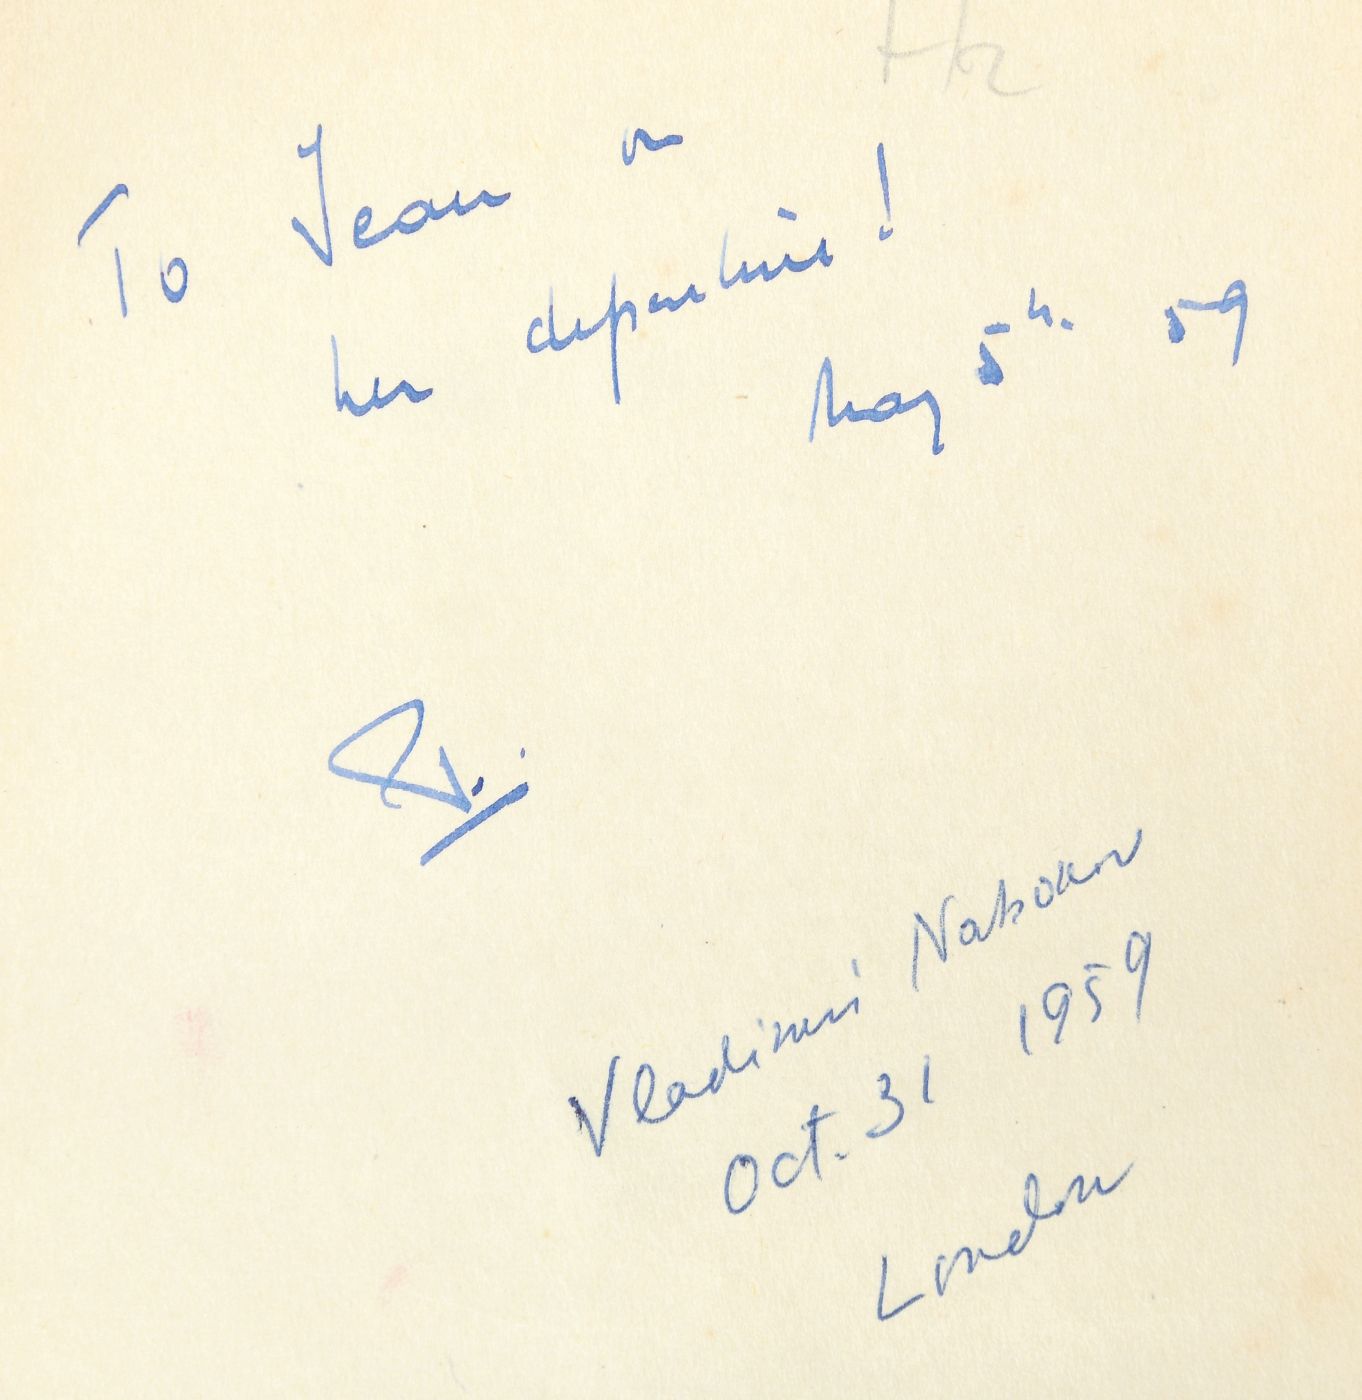 To Jean on
her departure!
May 5th. 59
Vladimir Nabokov
Oct. 31 1959
London